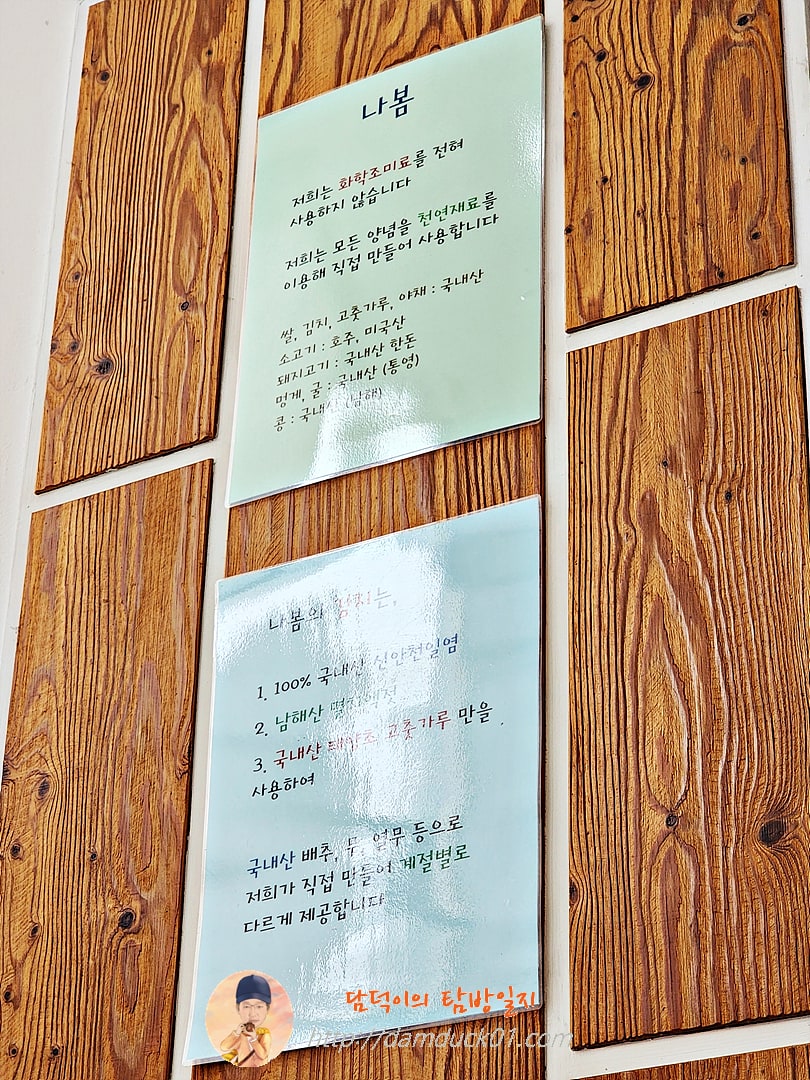 나봄
저희는 화학조미료를 전혀
사용하지 않습니다
저희는 모든 양념을 천연재료를
이용해 직접 만들어 사용합니다
쌀, 김치, 고춧가루, 야채 : 국내산
소고기 : 호주, 미국산
돼지고기 : 국내산 한돈
멍게, 굴 : 국내산 (통영)
콩 : 국내산 (남해)
나봄의 장지는,
1. 100% 국내산 신안천일염
2. 남해산 멸치액젓
3. 국내산 태양초 고춧가루 만을
사용하여
국내산 배추, 무, 열무 등으로
저희가 직접 만들어 계절별로
다르게 제공합니다
담덕이의 탐방일지
http://damduck01.com